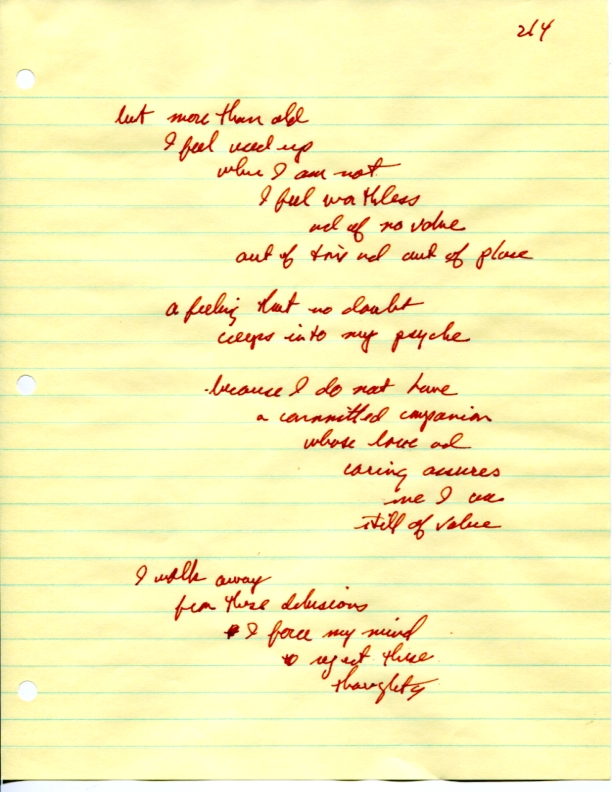 264
but more than old
I feel used up
when I am not
I feel worthless
and of no value
out of time and out of place
a feeling that no doubt
creeps into my psyche
because I do not have
a committed companion
whose love and
caring assures
me I am
still of value
I walk away
from these delusions
I force my mind
to reject these
thoughts